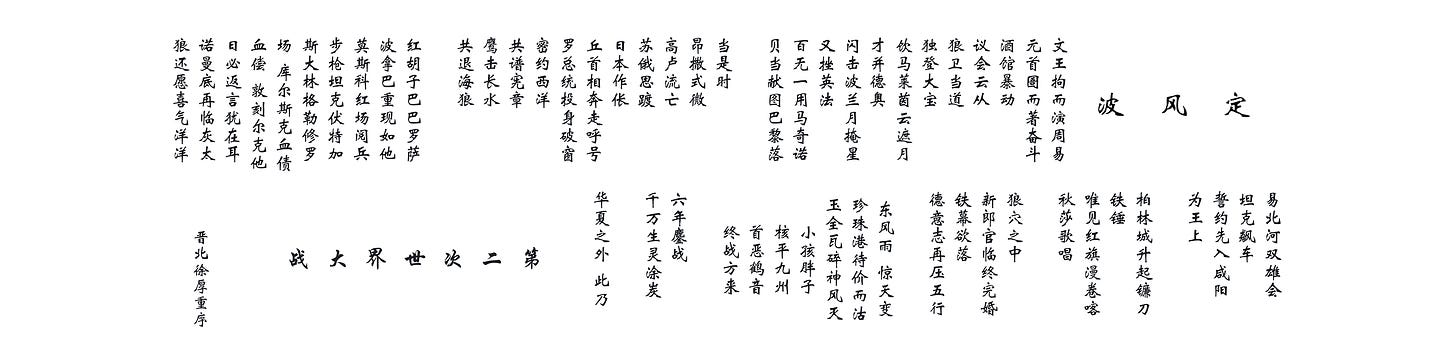 定风波
文王拘而演周易
元首圄而著奋斗
酒馆暴动
议会云从
狼卫当道
独登大宝
饮马莱茵云遮月
才并德奥
闪击波兰月掩星
又挫英法
百无一用马奇诺
贝当献图巴黎落
当是时
昂撒式微
高卢流亡
苏俄思踱
日本作伥
丘首相奔走呼号
罗总统投身破窗
密约西洋
共谱宪章
鹰击长水
共退海狼
红胡子巴巴罗萨
波拿巴重现如他
莫斯科红场阅兵
步枪坦克伏特加
斯大林格勒修罗
场 库尔斯克血债
血偿 敦刻尔克他
日必返言犹在耳
诺曼底再临灰太
狼还愿喜气洋洋
易北河双雄会
坦克飙车
誓约先入咸阳
为王上
柏林城升起镰刀
铁锤
唯见红旗漫卷喀
秋莎歌唱
狼穴之中
新郎官临终完婚
铁幕欲落
德意志再压五行
东风雨 惊天变
珍珠港待价而沽
玉全瓦碎神风灭
小孩胖子
核平九州
首恶鹤音
终战方来
六年鏖战
千万生灵涂炭
华夏之外 此乃
第二次世界大战
晋北徐厚重序